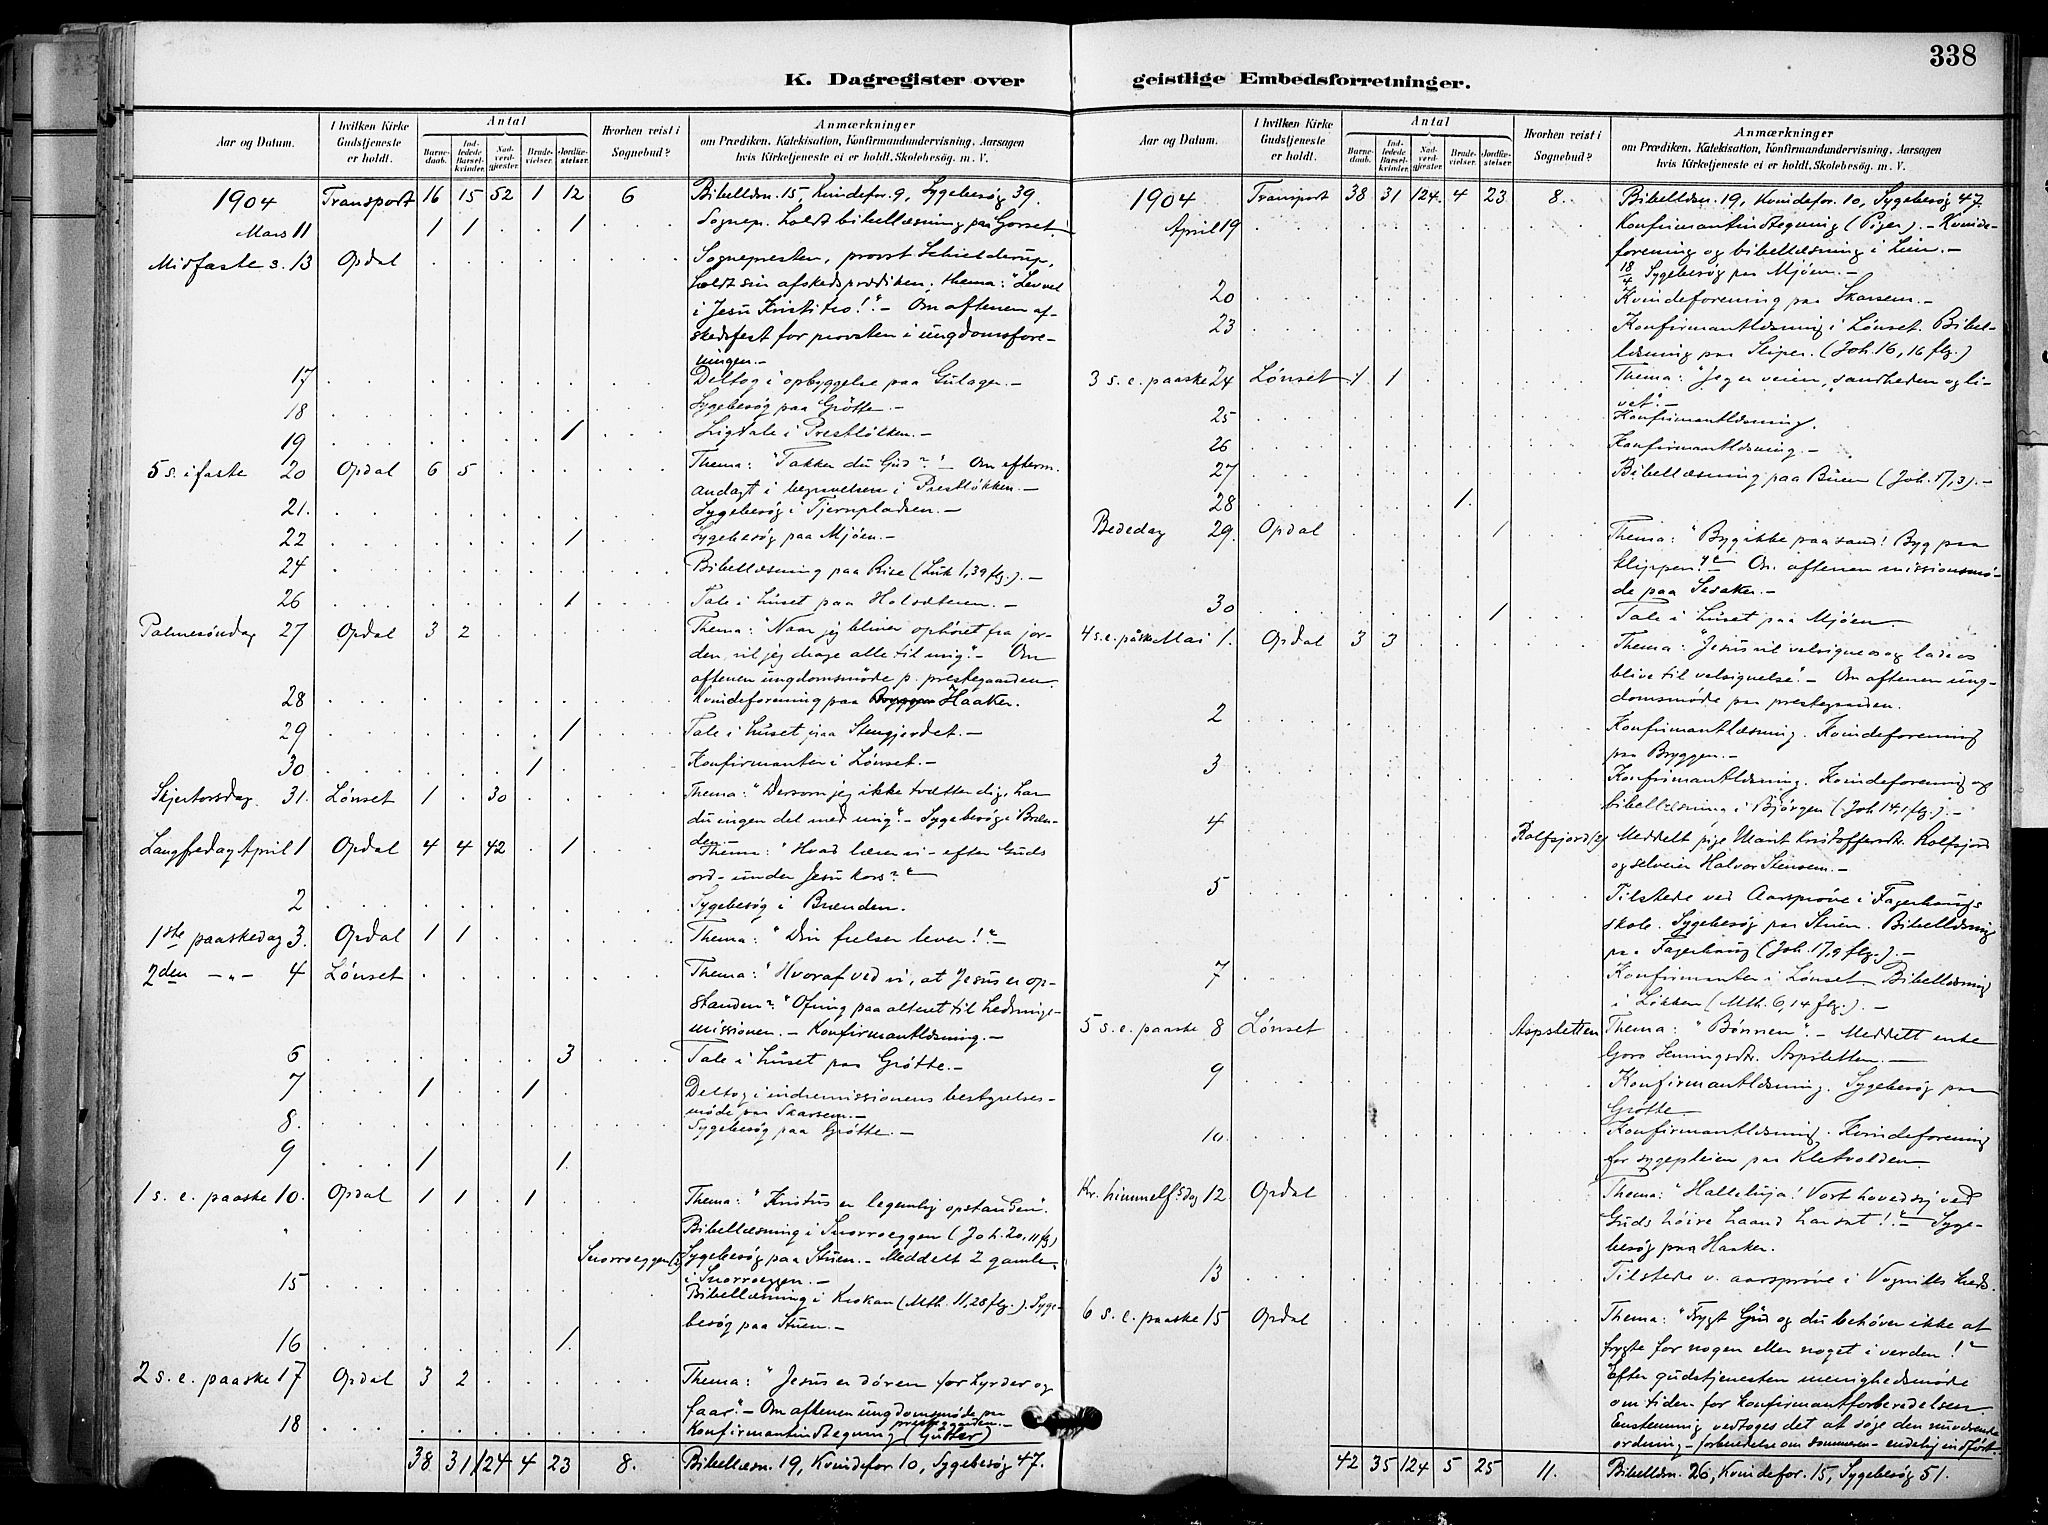 338
K. Dagregister over geistlige Embedsforretninger.
Aar og Datum. I hvilken Kirke Gudstjeneste er holdt. Antal Barnedaab. Indledede Barselkvinder. Nadverdgjæster. Brudevielser. Jordfæstelser. Hvorhen reist i Sognebud? Anmærkninger om Prædiken, Katekisation, Konfirmandundervisning, Aarsagen hvis Kirketjeneste ei er holdt, Skolebesøg. m. V.
1904 Transport 16 15 52 1 12 6 Bibellæsn. 15, Kvindefor. 9, Sygebesøg 39.
Mars 11 1 1 1 Sognep. holdt bibellæsning paa Gorset.
Midfaste s. 13 Opdal Sognepresten, provst Schielderup,
holdt sin afskedsprædiken; thema: "Lev vel
i Jesu Kristi tro!" - Om aftenen af-
skedsfest for provsten i ungdomsfore-
ningen.-
17 Deltog i opbyggelse paa Gulager.-
18 Sygebesøg paa Grøtte.-
19 1 Ligtale i Prestløkken.-
5 s. i faste 20 Opdal 6 5 Thema: "Takker du Gud?" - Om efterm.
andagt i begravelsen i Prestløkken.-
21. Sygebesøg i Tjernpladsen.-
22 1 Sygebesøg paa Mjøen.-
24 Bibellæsning paa Rise (Luk 1,39 flg.).-
26 1 Tale i huset paa Halsæteren.-
Palmesøndag 27 Opdal 3 2 Thema: "Naar jeg bliver ophøiet fra jor-
den, vil jeg drage alle til mig." - Om
aftenen ungdomsmøde p. prestegaarden.
28 Kvindeforening paa Bryggen Haaker.
29 1 Tale i huset paa Stengjerdet.-
30 1 Konfirmanter i Lønset.-
Skjertorsdag 31. Lønset 1 30 Thema: "Dersom jeg ikke tvætter dig, har
du ingen del med mig." - Sygebesøg i Bræn-
den.-
Langfredag April 1 Opdal 4 4 42 1 Thema: "Hvad lærer vi - efter Guds
ord - under Jesu kors?"
2 Sygebesøg i Brænden.
1ste paaskedag 3. Opdal 1 1 Thema: "Din frelser lever!" -
2den - " - 4 Lønset Thema: "Hvoraf ved vi, at Jesus er op-
standen?" Ofring paa alteret til hedninge-
missionen. - Konfirmantlæsning.-
6 3 Tale i huset paa Grøtte.-
7 1 1 Deltog i indremissionens bestyrelses-
møde paa Skarsem.-
8. Sygebesøg paa Grøtte.-
9 1 1.
1 s. e. paaske 10. Opdal 1 1 1 Thema: "Kristus er legemlig opstanden".
" Bibellæsning i Snorroeggen (Joh. 20, 11 flg)
Snorroeggen (2) Sygebesøg paa Stuen. - Meddelt 2 gamle
i Snorroeggen.-
15 Bibellæsning i Krokan (Mth. 11,28 flg.). Syge-
besøg paa Stuen.-
16 1.
2 s. e. paaske 17 Opdal 3 2 Thema: "Jesus er døren for hyrder og
faar." - Om aftenen ungdomsmøde paa
prestegaarden.-
18 Konfirmantindtegning (Gutter)
38 31 124 4 23 8. Bibellæsn. 19, Kvindefor. 10, Sygebesøg 47.
Aar og Datum. I hvilken Kirke Gudstjeneste er holdt. Antal Barnedaab. Indledede Barselkvinder. Nadverdgjæster. Brudevielser. Jordfæstelser. Hvorhen reist i Sognebud? Anmærkninger om Prædiken, Katekisation, Konfirmandundervisning, Aarsagen hvis Kirketjeneste ei er holdt, Skolebesøg. m. V.
1904 Transport 38 31 124. 4 23 8. Bibellæsn. 19, Kvindefor. 10, Sygebesøg 47.
April 19 Konfirmantindtegning (Piger). - Kvinde-
forening og bibellæsning i Lien.-
18/4 Sygebesøg paa Mjøen.-
20 Kvindeforening paa Skarsem.-
23 Konfirmantlæsning i Lønset. Bibel-
læsning paa Sliper. (Joh. 16, 16 flg.)
3 s. e. paaske 24 Lønset 1 1 Thema: "Jeg er veien, sandheden og li-
vet".-
25 Konfirmantlæsning.
26 Konfirmantlæsning.-
27 Bibellæsning paa Büen (Joh. 17,3).-
28 1.
Bededag 29. Opdal 1 Thema: "Byg ikke paa sand! Byg paa
klippen!" - Om aftenen missionsmø-
de paa Sesaker.-
30 1 Tale i huset paa Mjøen.
4 s. e. påske Mai 1. Opdal 3 3 Thema: "Jesus vil velsigne os og lade os
blive til velsignelse." - Om aftenen ung-
domsmøde paa prestegaarden.
2 Konfirmantlæsning. Kvindeforening
paa Bryggen.-
3 Konfirmantlæsning. Kvindeforening og
bibellæsning i Bjørgen (Joh. 14,1 flg.).-
4 Rolfsjord (2) Meddelt pige Marit Kristoffersdr. Rolfsjord
og selveier Halvor Stensem.-
5 Tilstede ved Aarsprøve i Fagerhaugs
skole. Sygebesøg paa Stuen. Bibellæsning
paa Fagerhaug (Joh. 17,9 flg.).-
7 Konfirmanter i Lønset. Bibellæsning
i Løkken (Mth. 6,14 flg.).-
5 s. e. paaske 8 Lønset Aspsletten Thema: "Bønnen". - Meddelt enke
Goro Henningsdr. Aspsletten.-
9 Konfirmantlæsning. Sygebesøg paa
Grøtte.
10. Konfirmantlæsning. Kvindeforening
for sygepleien paa Kletvolden.
Kr. himmelfsdag 12 Opdal Thema: "Halleluja! Vort hoved sig ved
Guds høire haand har sat!" - Syge-
besøg paa Haaker.
13 Tilstede v. aarsprøve i Vognills kreds.
6 s. e. paaske 15 Opdal Thema: "Frygt Gud og du behøver ikke at
frygte for nogen eller noget i verden!"
Efter gudstjenesten menighedsmøde
om tiden for konfirmantforberedelsen
Enstemmig vedtoges det at søge den nuværende
ordning - forberedelse om sommeren - endelig indført.
42 35 124 5 25 11. Bibellæsn. 26, Kvindefor. 15, Sygebesøg 51.